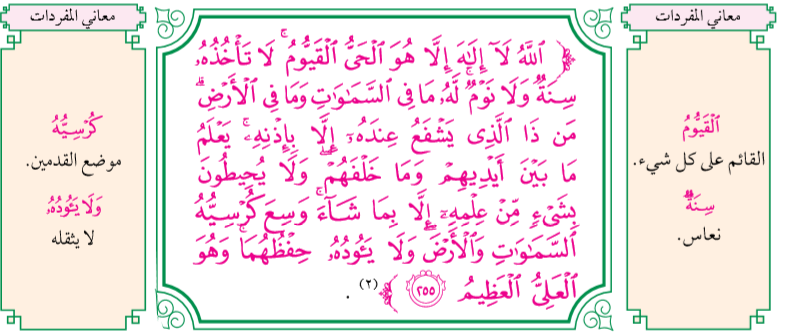 معاني المفردات
ٱلۡقَيُّومُ
القائم على كل شيء.
سِنَةٞ
نعاس.
﴿ ٱللَّهُ لَآ إِلَٰهَ إِلَّا هُوَ ٱلۡحَيُّ ٱلۡقَيُّومُۚ لَا تَأۡخُذُهُۥ
سِنَةٞ وَلَا نَوۡمٞۚ لَّهُۥ مَا فِي ٱلسَّمَٰوَٰتِ وَمَا فِي ٱلۡأَرۡضِۗ
مَن ذَا ٱلَّذِي يَشۡفَعُ عِندَهُۥٓ إِلَّا بِإِذۡنِهِۦۚ يَعۡلَمُ
مَا بَيۡنَ أَيۡدِيهِمۡ وَمَا خَلۡفَهُمۡۖ وَلَا يُحِيطُونَ
بِشَيۡءٖ مِّنۡ عِلۡمِهِۦٓ إِلَّا بِمَا شَآءَۚ وَسِعَ كُرۡسِيُّهُ
ٱلسَّمَٰوَٰتِ وَٱلۡأَرۡضَۖ وَلَا يَـُٔودُهُۥ حِفۡظُهُمَاۚ وَهُوَ
ٱلۡعَلِيُّ ٱلۡعَظِيمُ ٢٥٥ ﴾ (٢) .
معاني المفردات
كُرۡسِيُّهُ
موضع القدمين.
وَلَا يَـُٔودُهُۥ
لا يثقله